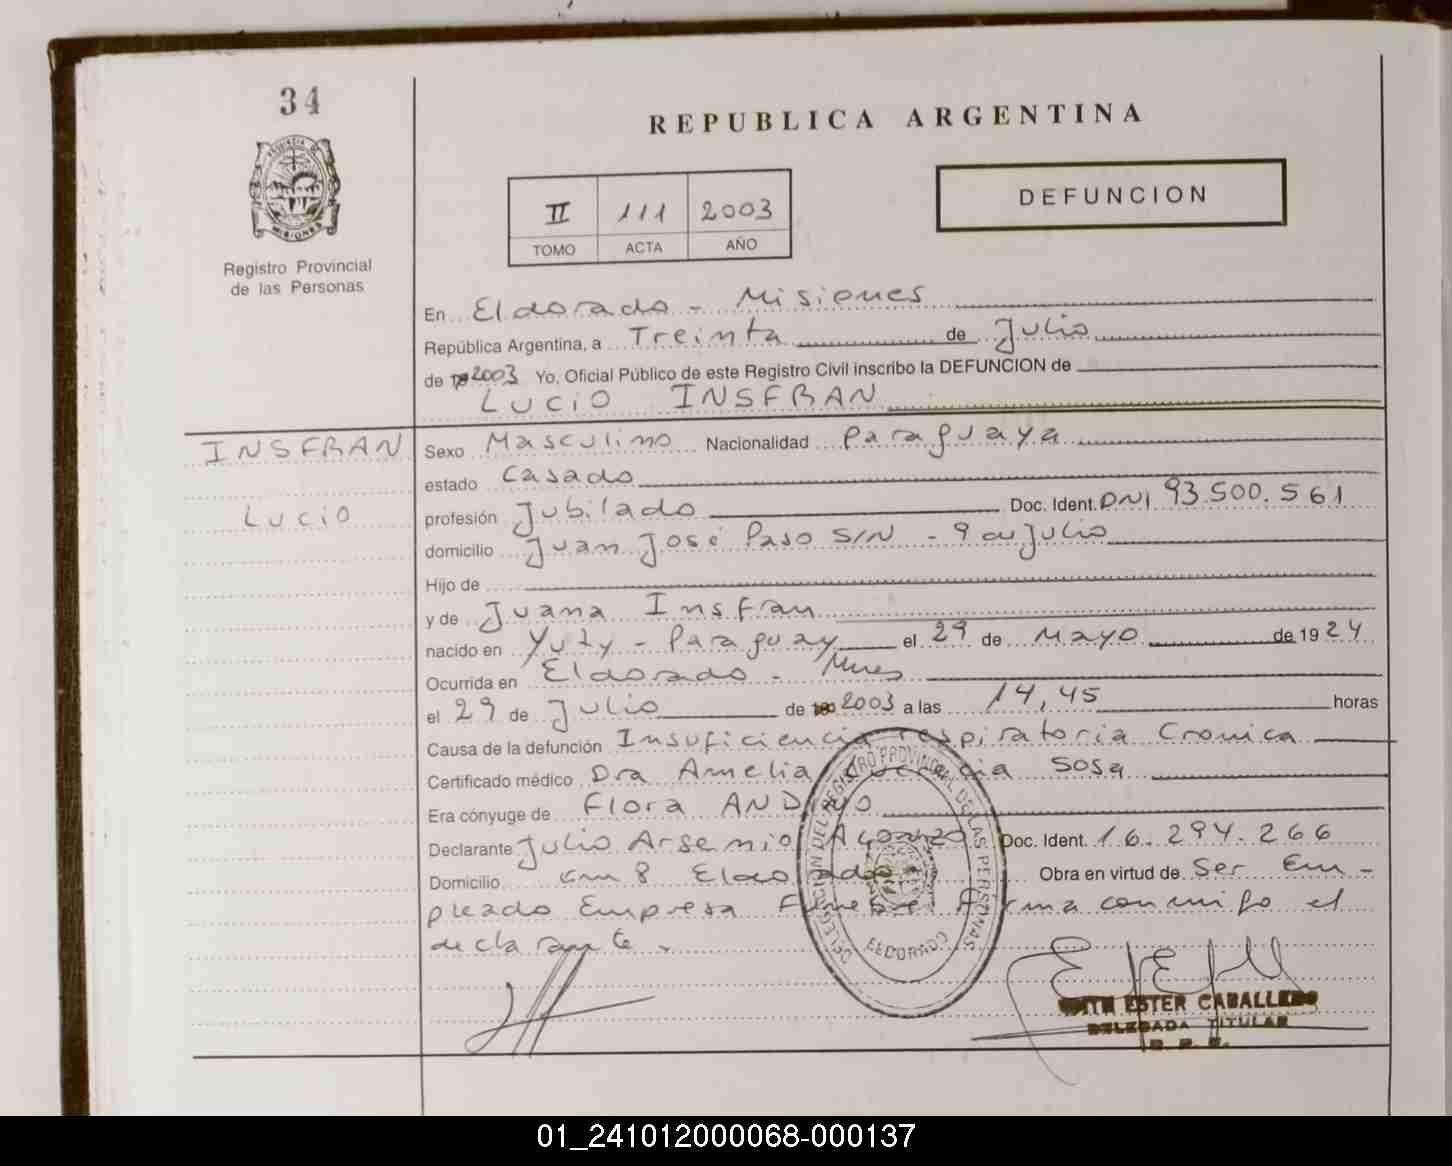 34
REPUBLICA ARGENTINA
PROVINCIA DE MISIONES
Registro Provincial
de las Personas
II 111 2003
TOMO ACTA AÑO
DEFUNCION
En Eldorado - Misiones
República Argentina, a Treinta de Julio
de 2003 Yo, Oficial Público de este Registro Civil inscribo la DEFUNCION de
LUCIO INSFRAN
INSFRAN
Lucio
Sexo Masculino Nacionalidad Paraguaya
estado Casado
profesión Jubilado Doc. Ident. DNI 93.500.561
domicilio Juan José Paso S/N - 9 de Julio
Hijo de
y de Juana Insfran
nacido en Yuty - Paraguay el 29 de Mayo de 1924
Ocurrida en Eldorado - Mnes
el 29 de Julio de 2003 a las 14,45 horas
Causa de la defunción Insuficiencia respiratoria Cronica
Certificado médico Dra Amelia Sosa
Era cónyuge de Flora
Declarante Julio Arsenio Doc. Ident. 16.294.266
Domicilio Km 8 Eldorado Obra en virtud de Ser Em-
pleado Empresa Funebre. Firma conmigo el
declarante -
DELEGACION DEL REGISTRO PROVINCIAL DE LAS PERSONAS
ELDORADO
ESTER CABALLERO
DELEGADA TITULAR
01_241012000068-000137